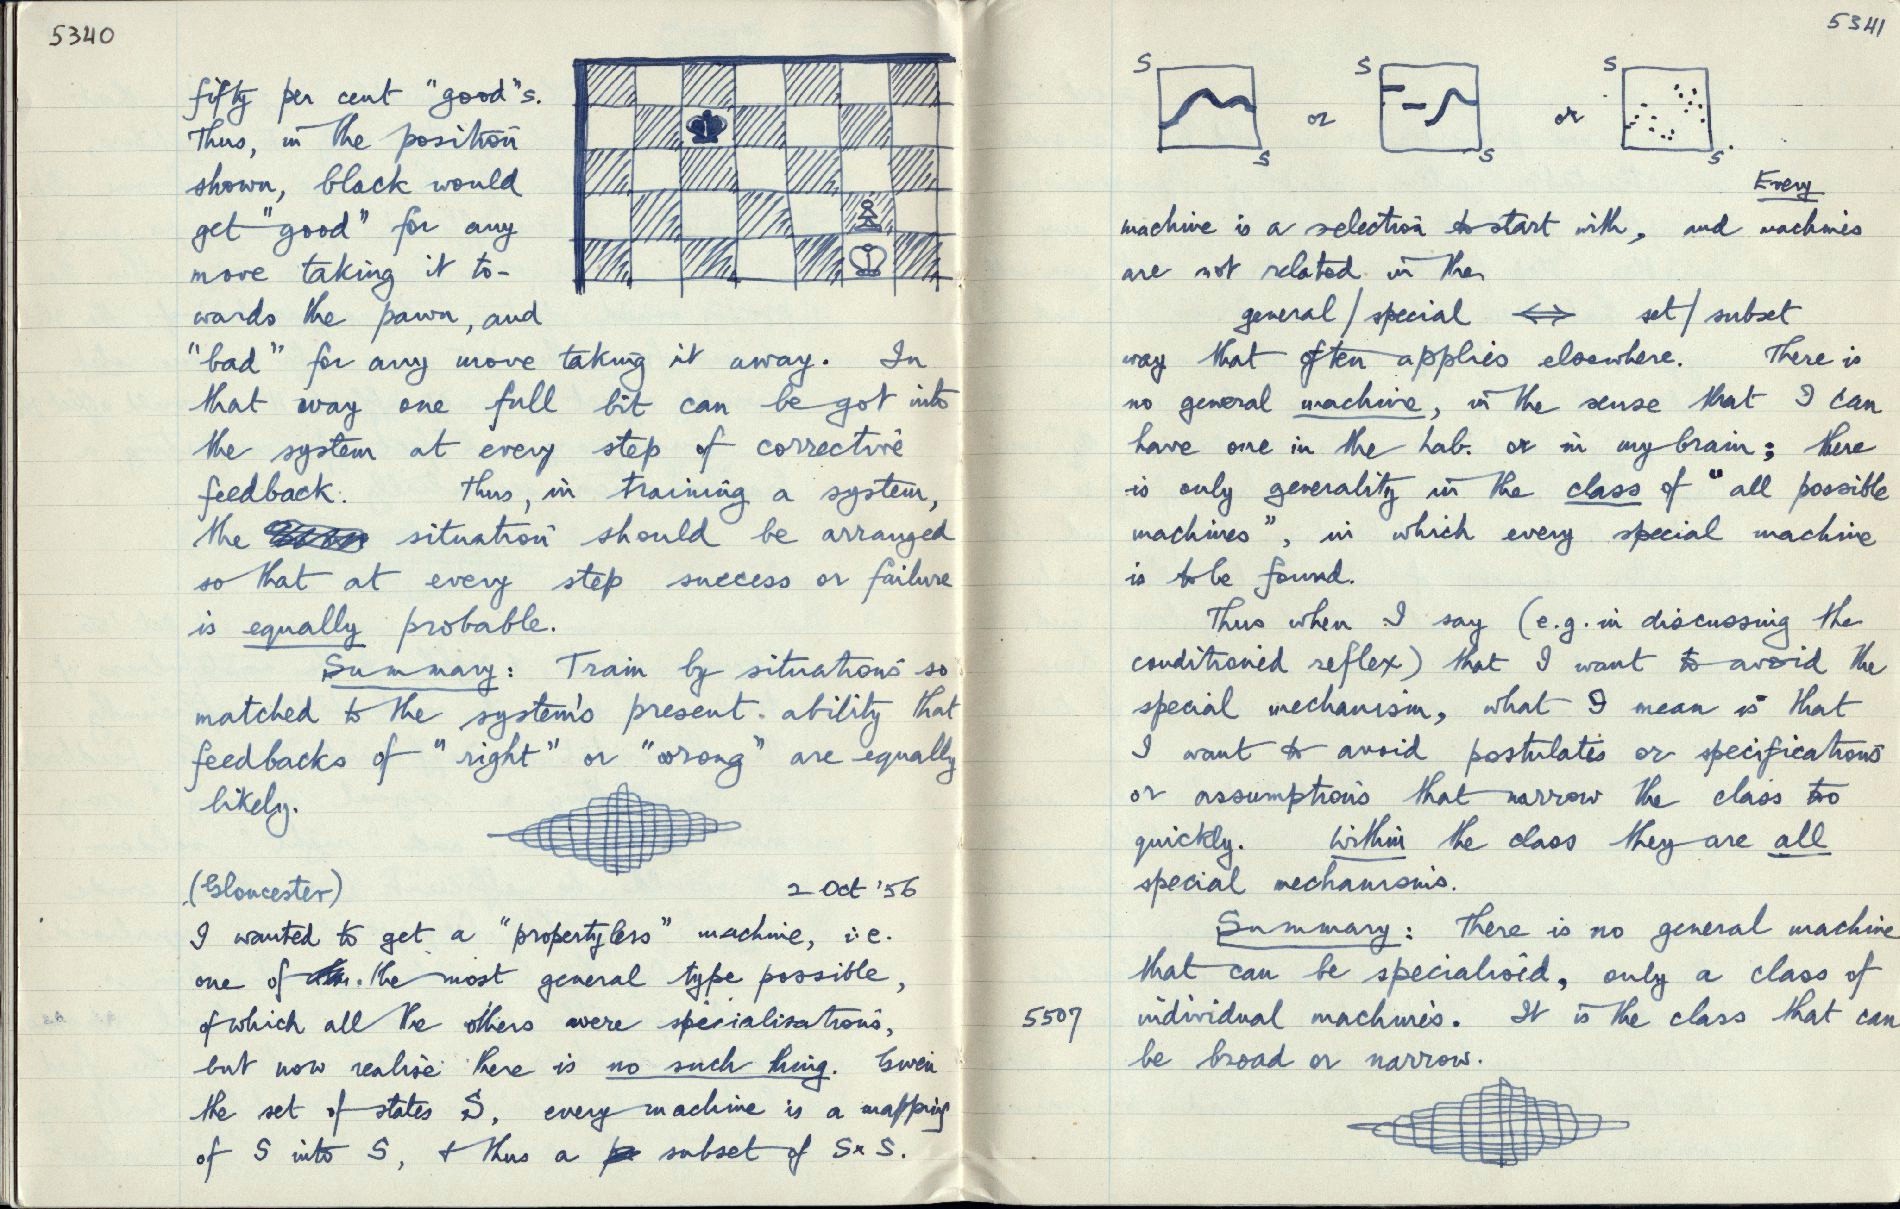 5340
fifty per cent "good"s.
Thus, in the position
shown, black would
get "good" for any
move taking it to-
wards the pawn, and
"bad" for any move taking it away. In
that way one full bit can be got into
the system at every step of corrective
feedback. Thus, in training a system,
the situation should be arranged
so that at every step success or failure
is equally probable.
Summary: Train by situations so
matched to the system's present ability that
feedbacks of "right" or "wrong" are equally
likely.
(Gloucester) 2 Oct '56
I wanted to get a "propertyless" machine, i.e.
one of the most general type possible,
of which all the others were specialisations,
but now realise there is no such thing. Given
the set of states S, every machine is a mapping
of S into S, & thus a subset of S×S.
5341
S S or S S or S S.
Every
machine is a selection to start with, and machines
are not related in the
general/special ⟺ set/subset
way that often applies elsewhere. There is
no general machine, in the sense that I can
have one in the lab. or in my brain; there
is only generality in the class of "all possible
machines", in which every special machine
is to be found.
Thus when I say (e.g. in discussing the
conditioned reflex) that I want to avoid the
special mechanism, what I mean is that
I want to avoid postulates or specifications
or assumptions that narrow the class too
quickly. Within the class they are all
special mechanisms.
Summary: There is no general machine
that can be specialised, only a class of
5507 individual machines. It is the class that can
be broad or narrow.